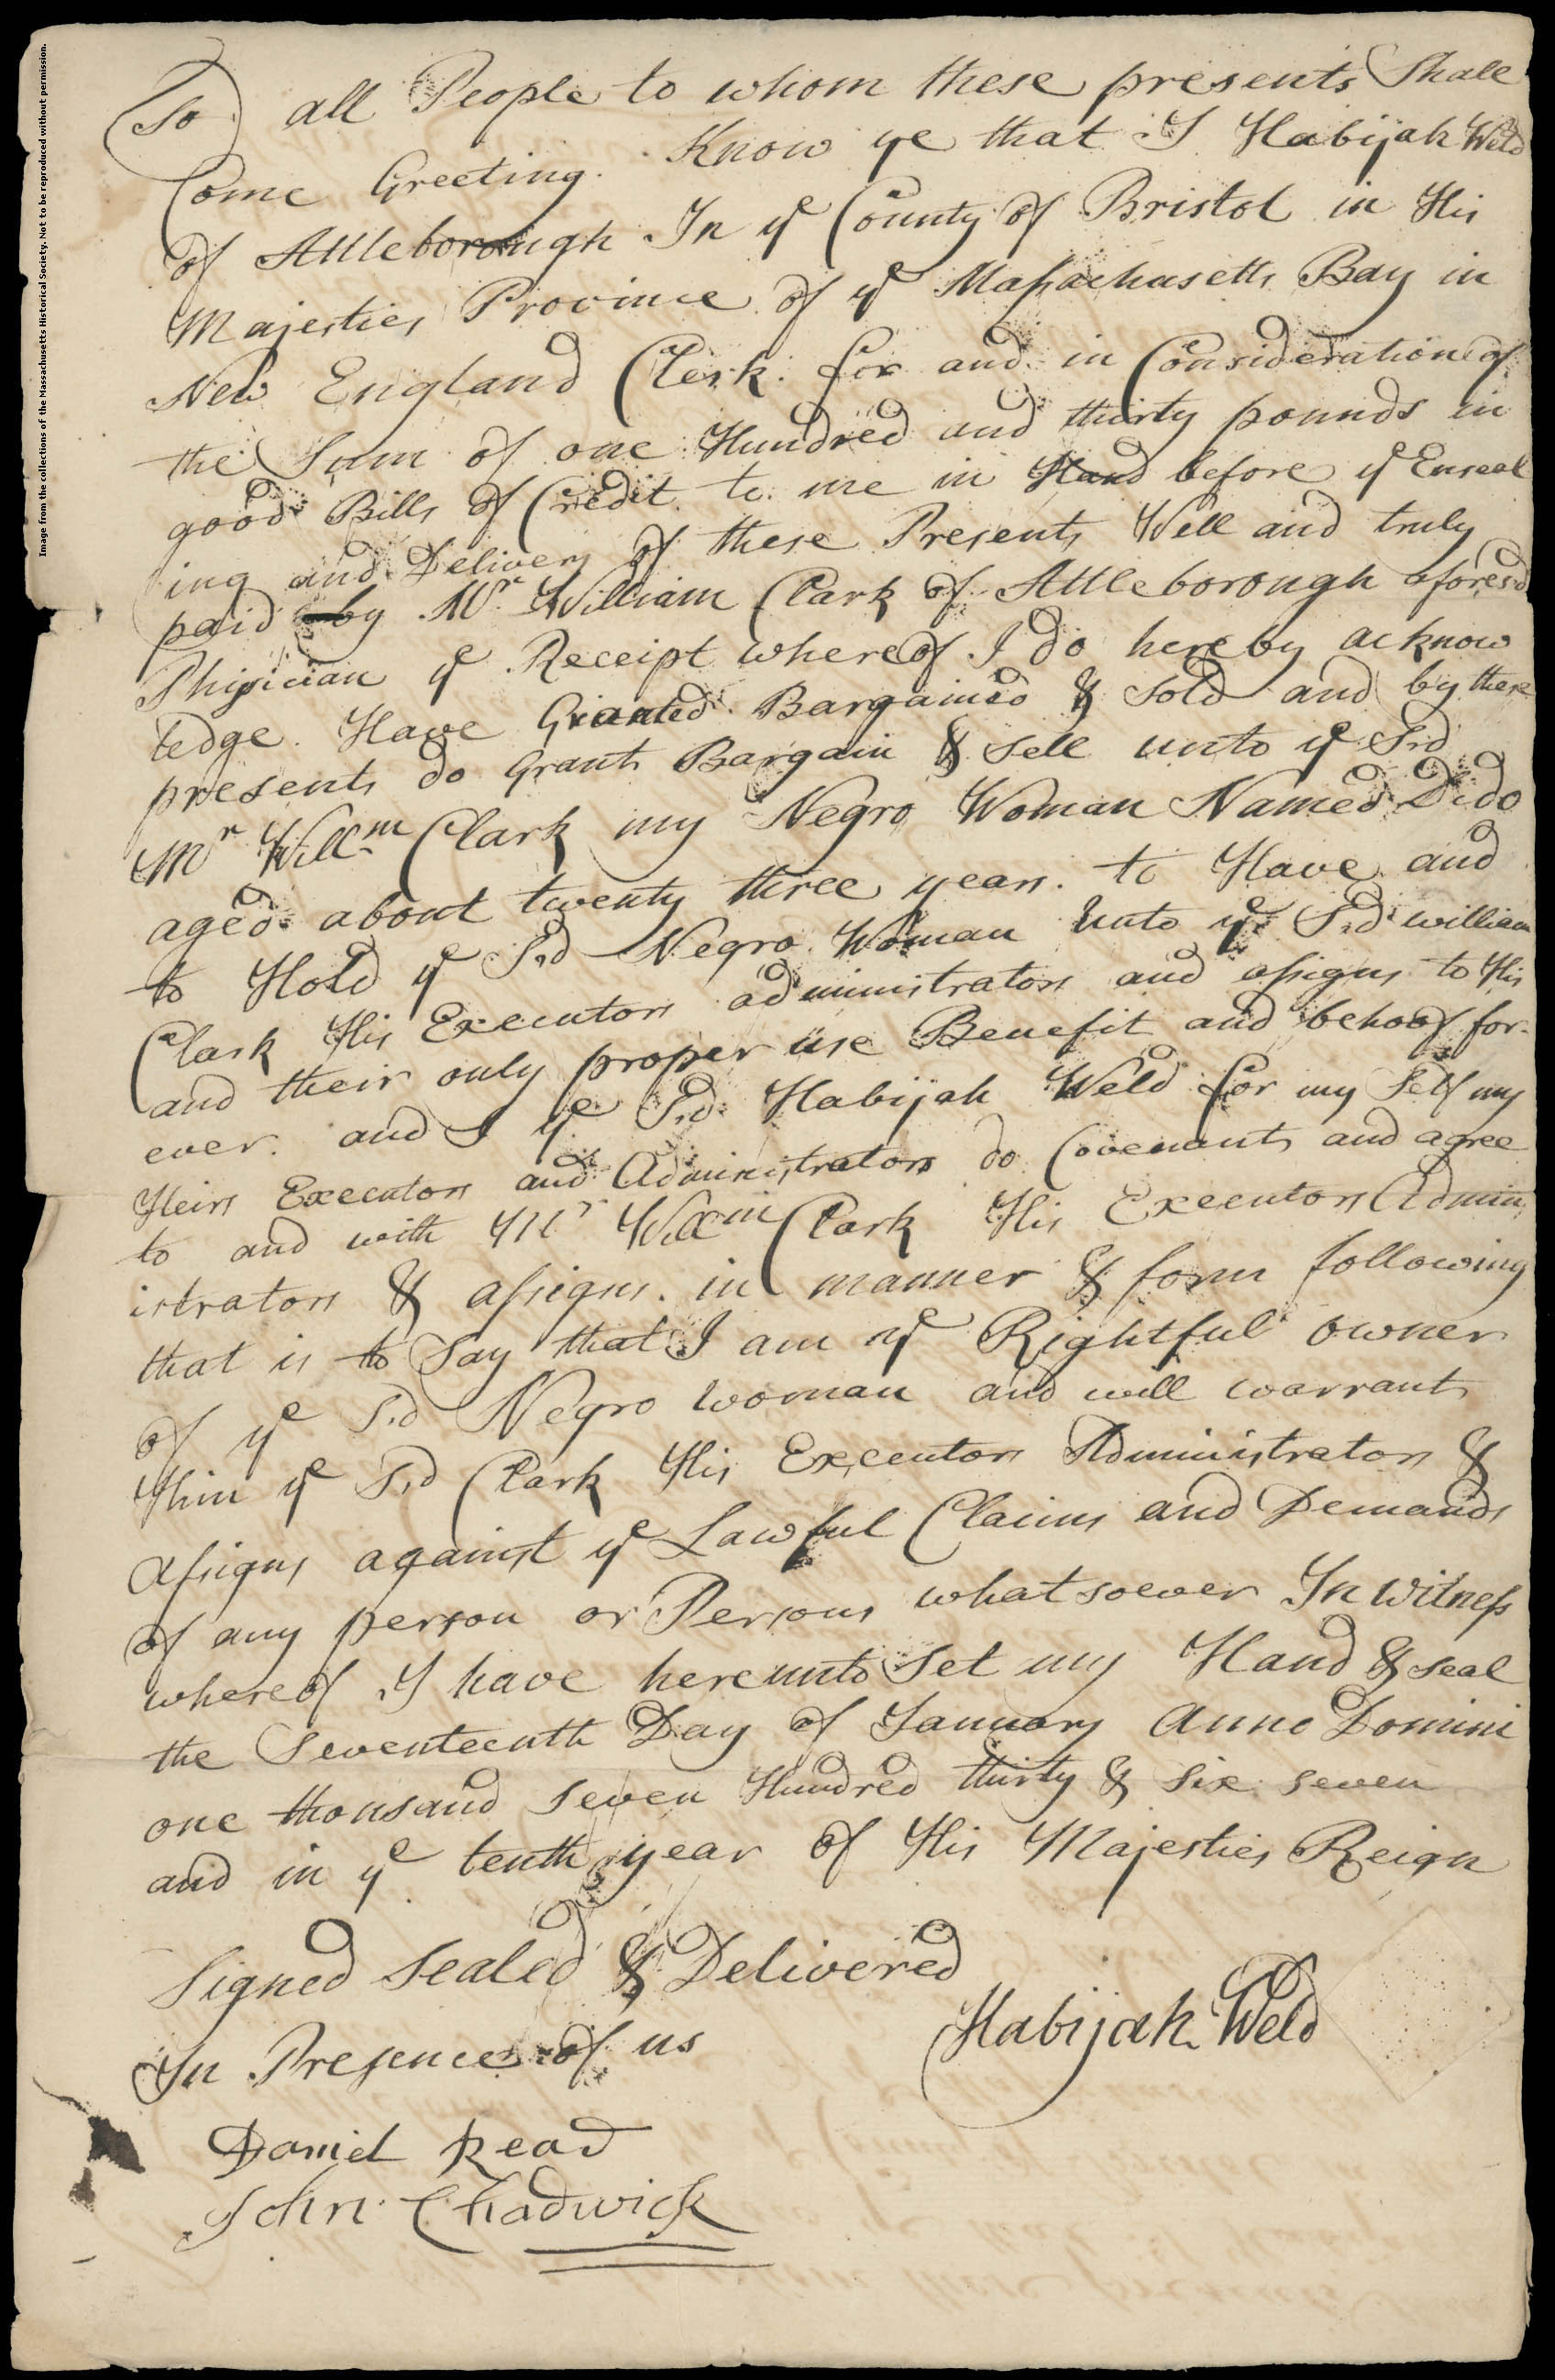 Image from the collections of the Massachusetts Historical Society. Not to be reproduced without permission.
To all People to whom these presents Shall
Come Greeting. Know ye that I Habijah Weld
of Attleborough In ye County of Bristol in His
Majesties Province of ye Massachusetts Bay in
New England Clerk. for and in Consideration of
the Sum of one Hundred and thirty pounds in
good Bills of Credit to me in Hand before ye Enseal
ing and Delivery of these Presents Well and truly
paid by Mr William Clark of Attleborough aforesd
Phisician ye Receipt whereof I do hereby acknow
ledge. Have Granted Bargained & Sold and by these
presents do Grant Bargain & Sell unto ye Sd
Mr Willm Clark my Negro Woman Named Dido
aged about twenty three years. to Have and
to Hold ye Sd Negro Woman Unto ye Sd william
Clark His Executors administrators and assigns to His
and their only proper use Benefit and behoof for-
ever. and I ye Sd Habijah Weld for my Self my
Heirs Executors and Administrators do Covenant and agree
to and with Mr Willm Clark His Executors Admin
istrators & assigns. in manner & form following
that is to Say that I am ye Rightful owner
of ye Sd Negro woman and will warrant
Him ye Sd Clark His Executors Administrators &
assigns against ye Lawful Claims and Demands
of any person or Persons whatsoever In Witness
whereof I have hereunto Set my Hand & seal
the Seventeenth Day of January Anno Domini
one thousand seven Hundred thirty & six seven
and in ye tenth year of His Majesties Reign
Signed Sealed & Delivered
In Presence of us
Habijah Weld
Daniel Read
John Chadwick